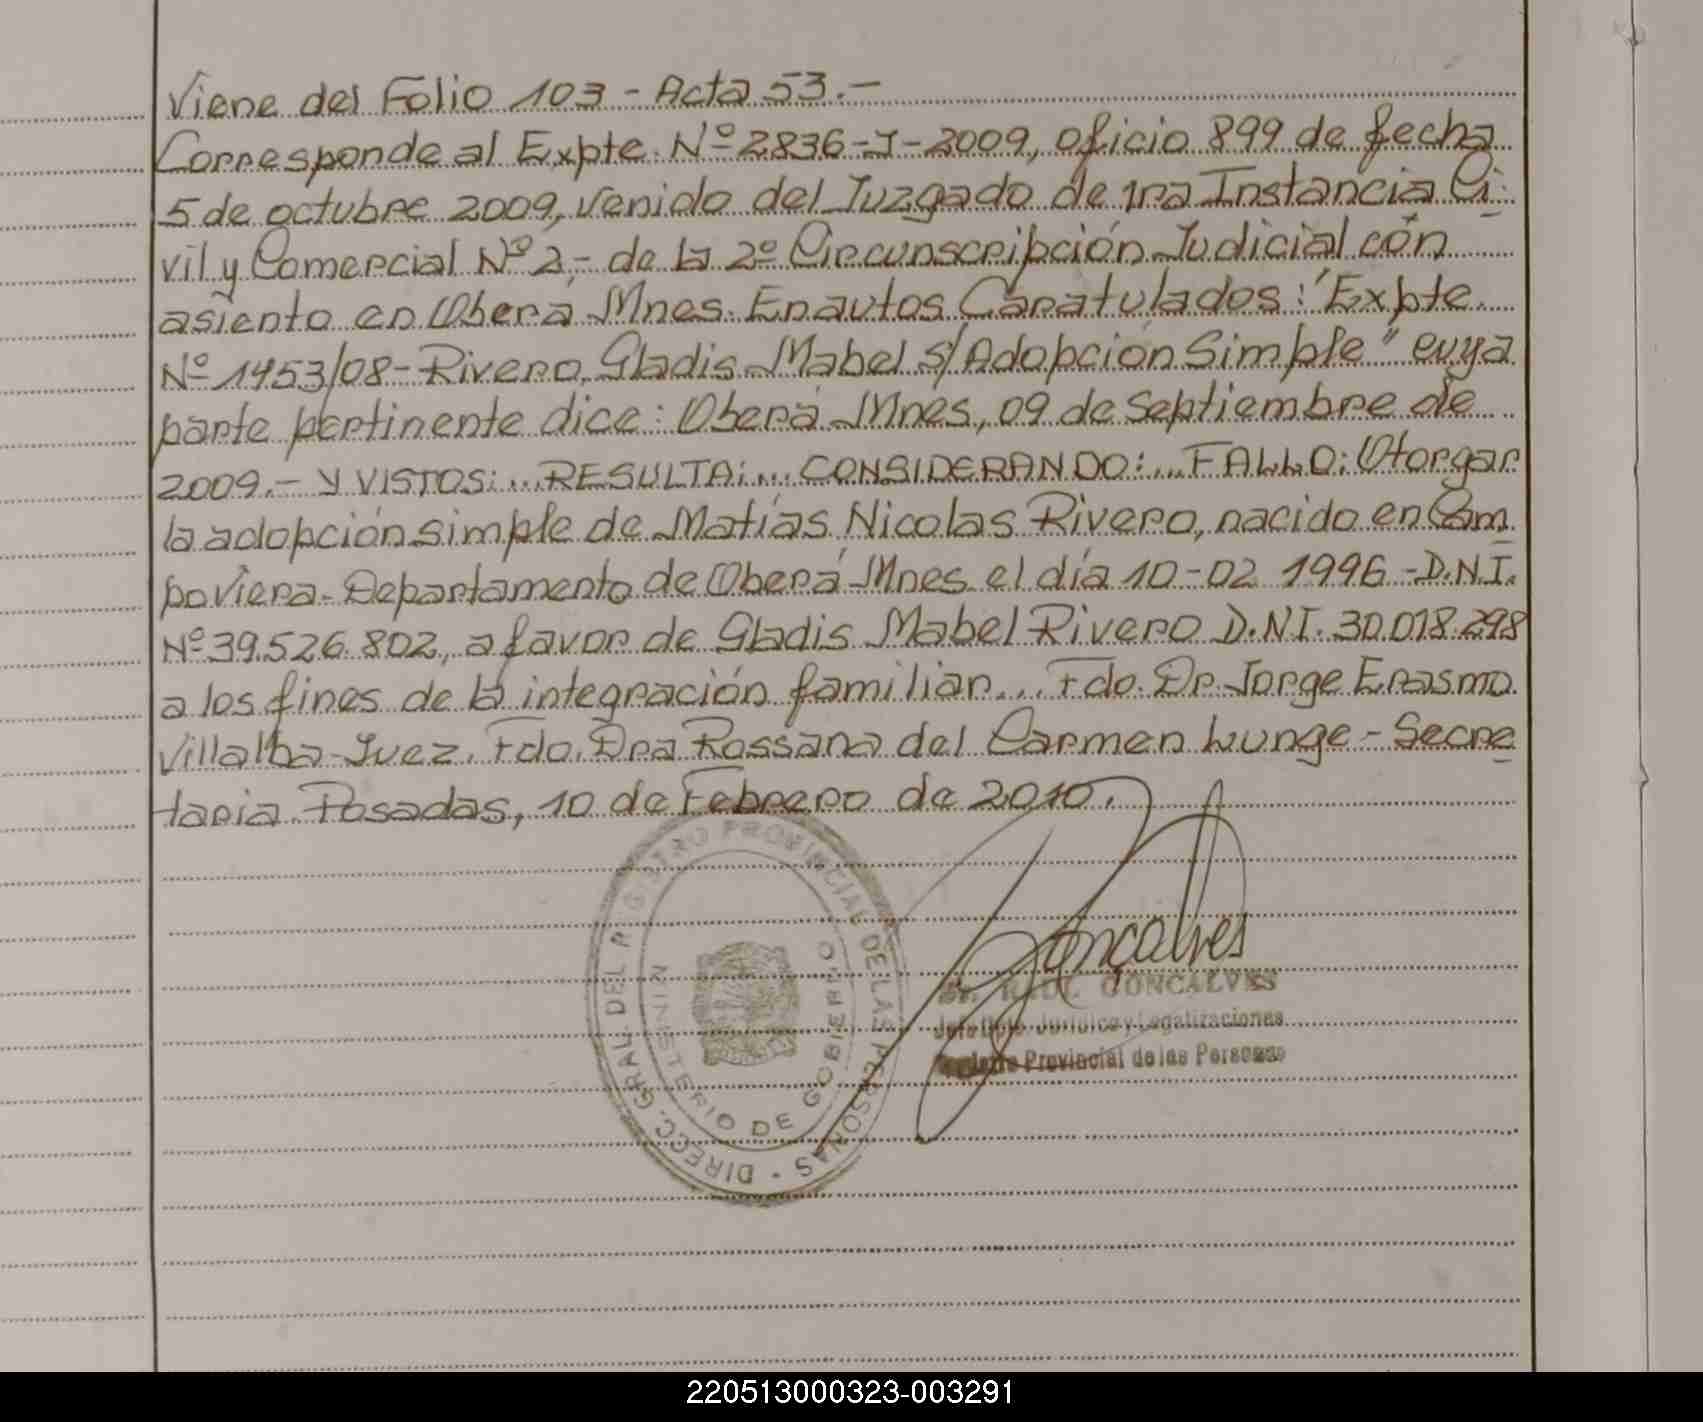 Viene del Folio 103 - Acta 53.-
Corresponde al Expte. Nº 2836-J-2009, oficio 899 de fecha
5 de octubre 2009, venido del Juzgado de 1ra Instancia Ci-
vil y Comercial Nº 2,- de la 2º Circunscripción Judicial cón
asiento en Oberá Mnes. En autos Caratulados: "Expte.
Nº 1453/08- Rivero, Gladis Mabel S/Adopción Simple" cuya
parte pertinente dice: Oberá Mnes, 09 de Septiembre de
2009.- Y VISTOS:... RESULTA:... CONSIDERANDO:... FALLO: Otorgar
la adopción simple de Matías Nicolas Rivero, nacido en Cam
po Viera- Departamento de Oberá Mnes. el día 10-02 1996 -D.N.I.
Nº 39.526.802, a favor de Gladis Mabel Rivero D.N.I. 30.018.298
a los fines de la integración familiar... Fdo. Dr. Jorge Erasmo
Villalba-Juez. Fdo. Dra Rossana del Carmen Lunge - Secre
taria. Posadas, 10 de Febrero de 2010.
DIRECC. GRAL. DEL REGISTRO PROVINCIAL DE LAS PERSONAS -
MINISTERIO DE GOBIERNO
Gonçalves
Dr. RAUL GONCALVES
Jefe Dpto. Jurídico y Legalizaciones
Provincial de las Personas
220513000323-003291